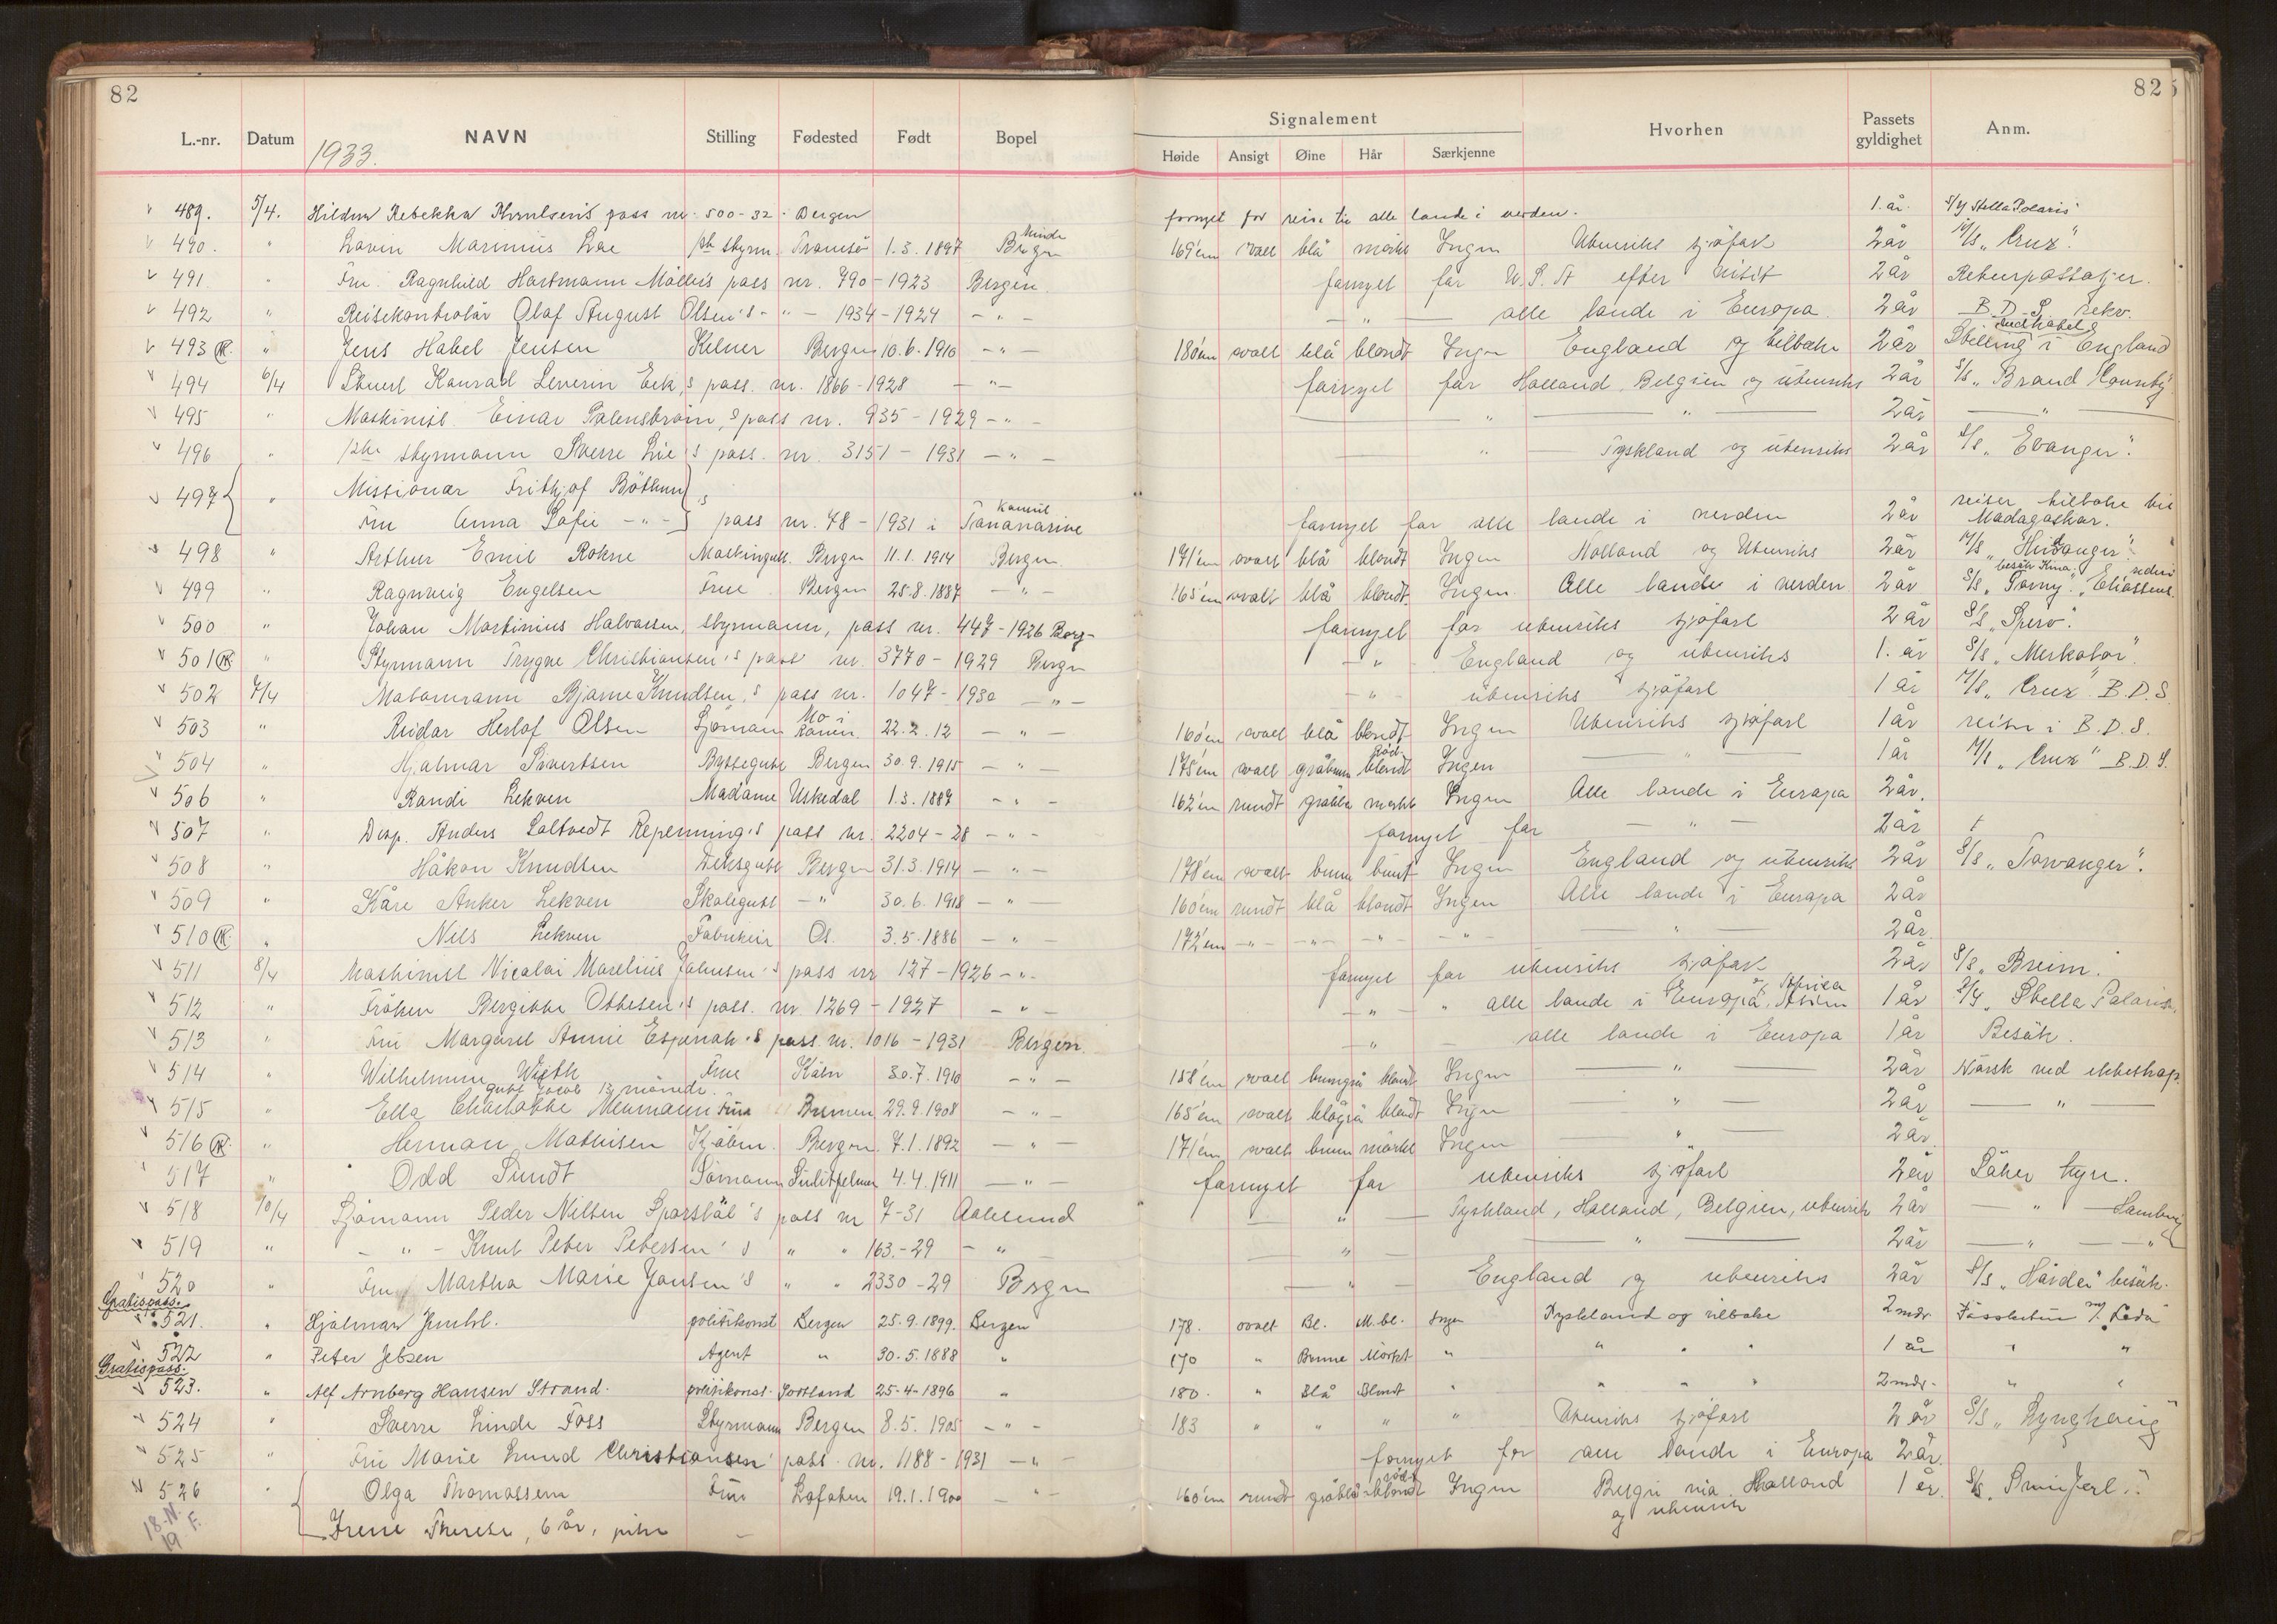 82
82
L.-nr. Datum NAVN Stilling Fødested Født Bopel
Signalement Hvorhen Passets gyldighet Anm.
Høide Ansigt Øine Hår Særkjenne
1933.
489. 5/4. Rebekka pass nr. 500-32. Bergen fornyet for reise til alle lande i verden. 1. år. S/Y Stella Polaris
490. " Marinius Lie styrm. Tromsö 1.3.1897 Minde Bergen 169 cm ovalt blå mørkt Ingen Utenriks sjöfart 2 år M/S "Cruz".
491 " Fru. Ragnhild Hartmann Möller's pass nr. 790-1923 Bergen. fornyet for U.S.A efter visit 2 år Returpassasjer.
492 " Reisekontrolör Olaf August Olsen's - " - 1934-1924 - " - - " - alle lande i Europa. 2 år B.D.S rekv.
493 " Jens Habel Jensen Kelner Bergen 10.6.1910 - " - 180 cm ovalt blå blondt Ingen England og tilbake 2 år Stilling i England
494 6/4 Stuert Konrad Severin Eek's pass. nr. 1866-1928 - " - fornyet for Holland, Belgien og utenriks 2 år S/S "Brand County"
495 " Maskinist Einar 's pass nr. 935-1929 - " - " " 2 år "
496 " styrmann Sverre Lie's pass. nr. 3151-1931 - " - " Tyskland og utenriks 2 år S/S "Evanger".
497 " Missionær Frithjof Böthun
Fru Anna Sofie - " - 's pass nr. 78-1931 i Tananarive fornyet for alle lande i verden 2 år reiser tilbake til Madagaskar.
498 " Arthur Emil Rokne Maskingutt. Bergen 11.1.1914 Bergen. 171 cm ovalt blå blondt Ingen Holland og Utenriks 2 år M/S "Hidanger".
499 " Ragnveig Engelsen Frue Bergen 25.8.1887 - " - 165 cm ovalt blå blondt. Ingen Alle lande i verden 2 år besök Kina. S/S "Torny". Eliassens. rederi
500 " Johan Martinius Halvorsen, styrmann, pass nr. 447-1926 Berg- fornyet for utenriks sjöfart 2 år S/S "Spero".
501 " Styrmann Trygve Christiansen's pass nr. 3770-1929 Bergen - " - England og utenriks 1. år S/S "Merkator".
502 7/4 Matormann Bjarne Knudsen's pass nr. 1047-1930 - " - - " - utenriks sjöfart 1 år M/S "Cruz" B.D.S
503 " Reidar Herlof Olsen Sjömann Mo i Ranen. 22.2.12 - " - 160 cm ovalt blå blondt Ingen Utenriks sjöfart 1 år reiser i B.D.S.
504 " Hjalmar Sivertsen Byssegutt Bergen 30.9.1915 - " - 175 cm ovalt gråbrun rød. blondt Ingen " 1 år M/S "Cruz" B.D.S.
506 " Randi Lekven Madame Uskedal 1.3.1887 - " - 162 cm rundt gråblå mørkt Ingen Alle lande i Europa 2 år.
507 " Disp. Anders Saltvedt Repenning's pass nr. 2204-28 - " - fornyet for - " - 2 år
508 " Håkon Knudsen Deksgutt Bergen 31.3.1914 - " - 178 cm ovalt brun brunt Ingen England og utenriks 2 år S/S "Torvanger".
509 " Kåre Anker Lekven Skolegutt - " 30.6.1918 - " - 160 cm rundt blå blondt Ingen Alle lande i Europa 2 år
510 " Nils Lekven Fabrikeier Os. 3.5.1886 - " - 172 cm - " - - " - - " - - " - " 2 år.
511 8/4 Maskinist Nicolai Marelius Johnsen's pass nr 127-1926 - " - fornyet for utenriks sjöfart 2 år S/S "Breim".
512 " Fröken Bergitte Ottesen's pass. nr 1269-1927 - " - - " - " alle lande i Europa, og Africa 1 år S/Y "Stella Polaris".
513 " Fru Margaret Annie 's pass nr. 1016-1931 Bergen. - " - alle lande i Europa 1 år Besök.
514 " Wilhelmine Wieth Frue Köln 30.7.1910 - " - 158 cm ovalt brungrå blondt Ingen " 2 år Norsk ved ekteskap.
gutt Jacob 13 måneder.
515 " Ella Charlotte Neumann Frue Bremen 29.9.1908 - " - 165 cm ovalt blågrå blondt Ingen " 2 år "
516 " Herman Mathisen Kjöbm. Bergen. 7.1.1892 - " - 171 cm ovalt brun mørkt Ingen " 2 år.
517 " Odd Sundt Sömann Sulitjelma 4.4.1911 - " - fornyet for utenriks sjöfart 2 år Söker hyre.
518 10/4 Sjömann Peder Nilsen Sporsböl's pass nr 7-31 Aalesund " Tyskland, Holland, Belgien, utenrik 2 år "
519 " - " - Knut Peter Petersen's " " 163-29 - " " " 2 år "
520 " Fru Martha Marie Jansen's " " 2330-29 Bergen " England og utenriks 2 år S/S "Hårdei" besök.
Gratispass.
521. " Hjalmar politikonst Bergen 25.9.1899. Bergen 178. ovalt Bl. M.bl. Ingen Tyskland og tilbake 2 mdr "Leda"
522 " Peter Jebsen Agent " 30.5.1888 " 170 " Brune Mörkt " " " " 1 år " "
Gratispass.
523. " Alf Arnberg Hansen Strand. politikonst. Sortland 25-4-1896 " 180. " Blå Blondt " " " " 2 mdr. " "
524 " Sverre Linde Foss Styrmann Bergen 8.5.1905 - " - 183 " " " " Utenriks sjöfart 2 år S/S "Lynghaug"
525 " Fru Marie Lund Christiansen' pass. nr. 1188-1931 - " - fornyet for alle lande i Europa 2 år.
526 " Olga Thomassen Frue Lofoten 19.1.1900 - " - 160 cm rundt gråblå rödt blondt Ingen Belgi via Holland og utenrik 1 år.
Irene Therese, 6 år, pike
18-N.
19 F.